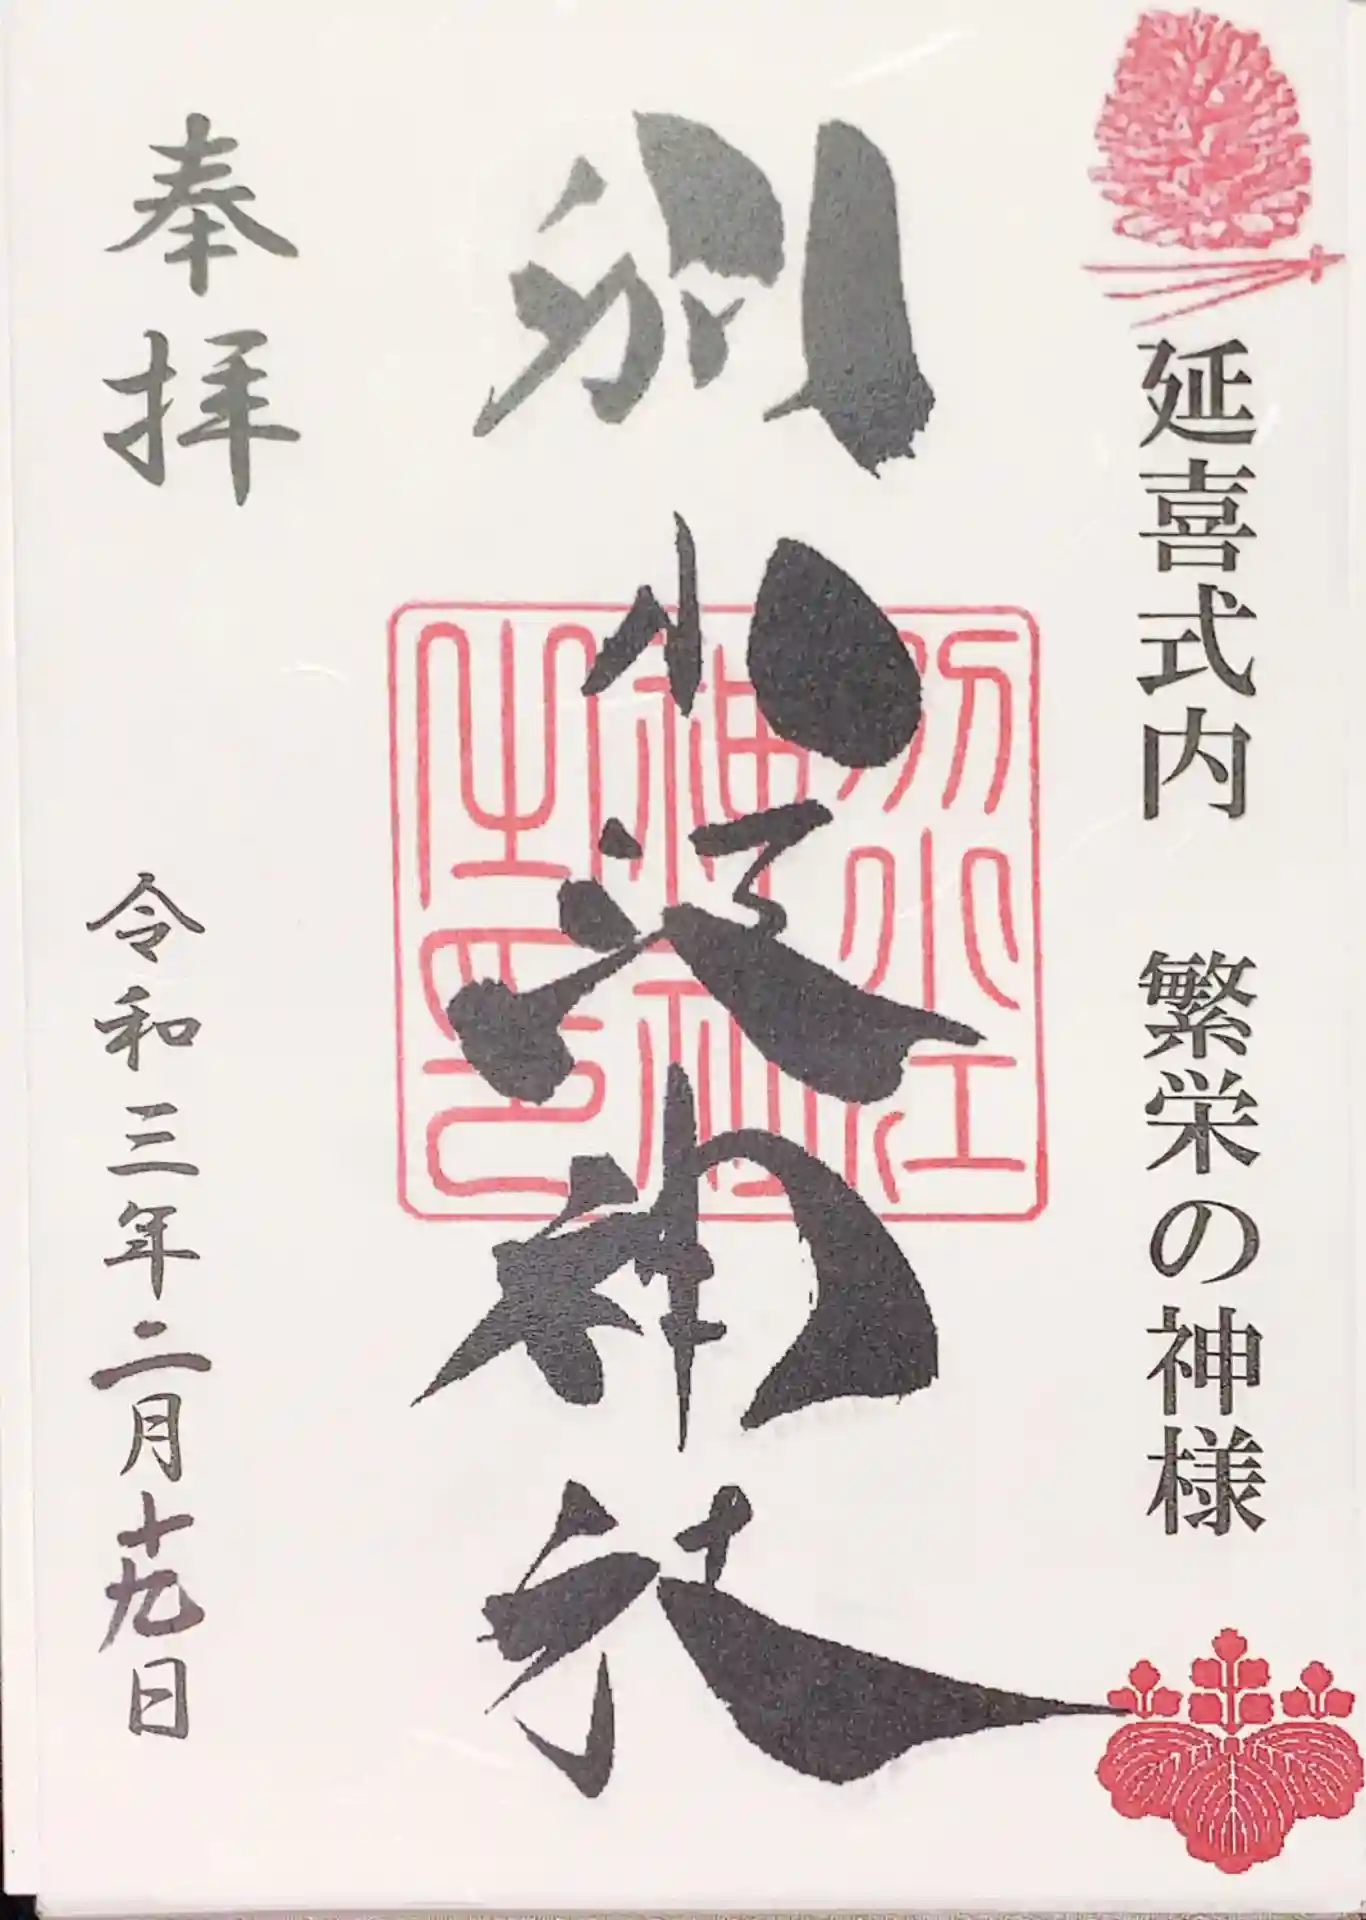 延喜式内　繁栄の神様
別小江神社
別小江
神社
之印
奉拝
令和三年二月十九日